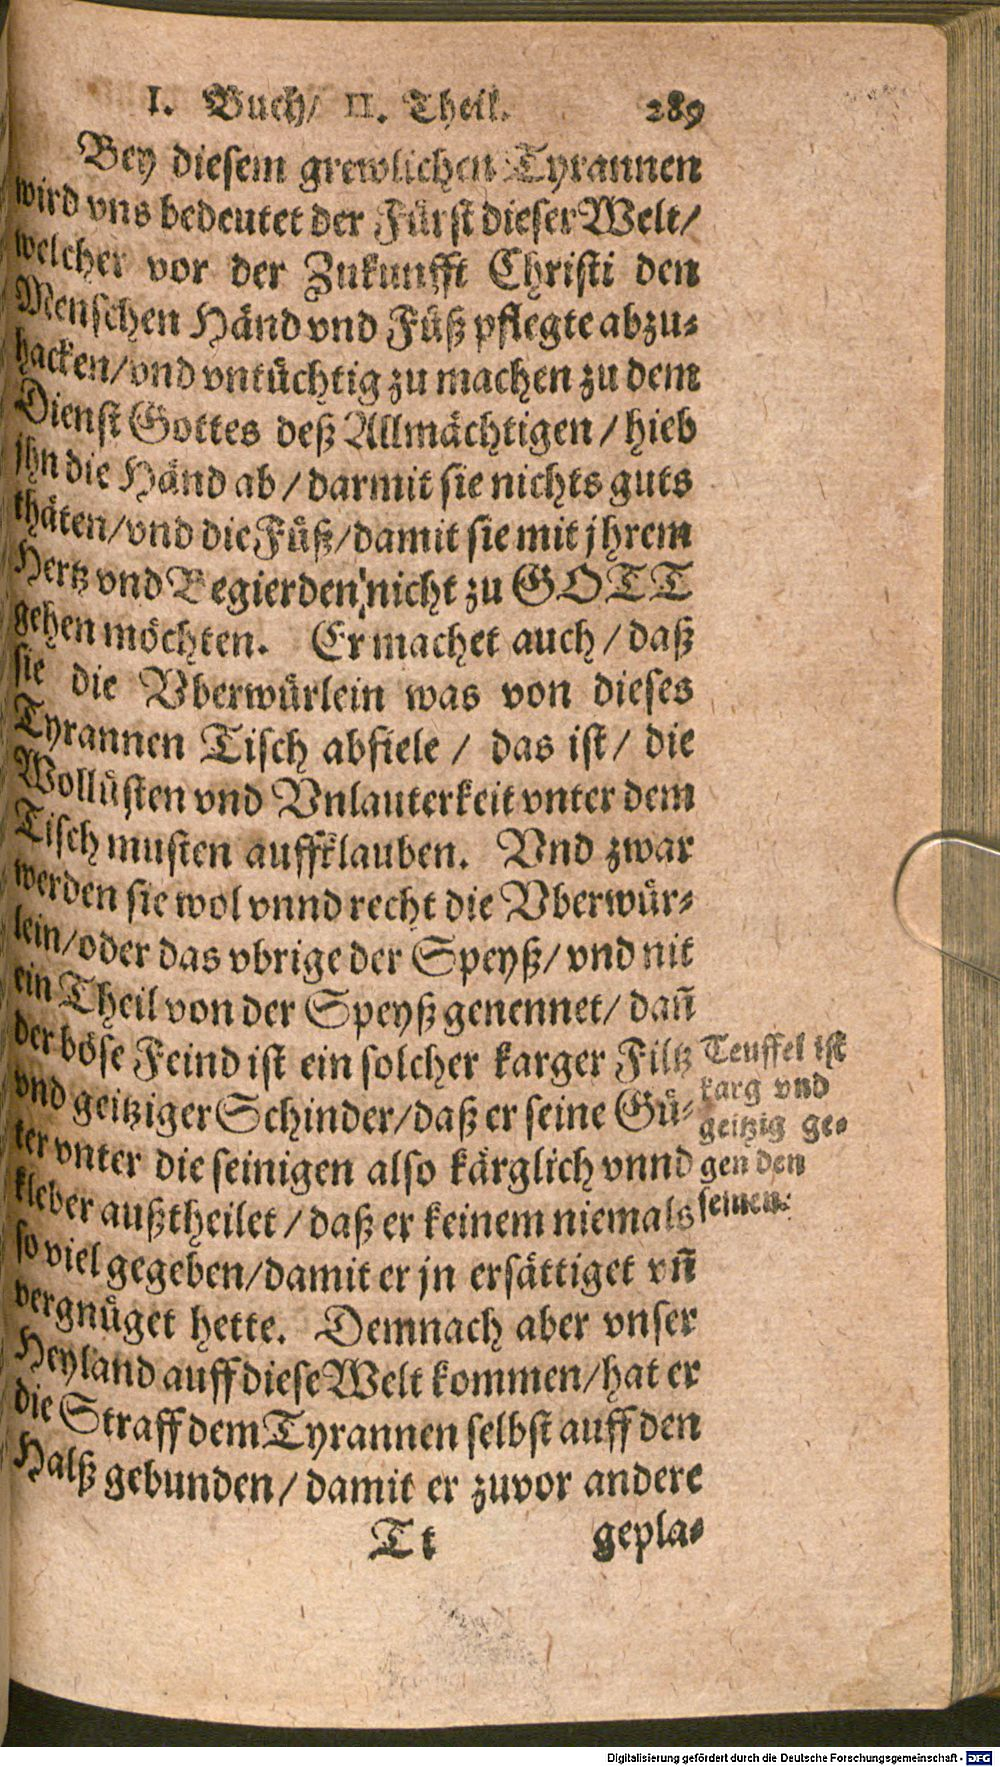 I. Buch/ II. Theil. 289
Bey diesem grewlichen Tyrannen
wird vns bedeutet der Fürst dieser Welt/
welcher vor der Zukunfft Christi den
Menschen Händ vnd Füß pflegte abzu-
hacken/vnd vntüchtig zu machen zu dem
Dienst Gottes deß Allmächtigen/ hieb
jhn die Händ ab/ darmit sie nichts guts
thäten/vnd die Füß/damit sie mit jhrem
Hertz vnd Begierden nicht zu GOTT
gehen möchten. Er machet auch/ daß
sie die Vberwürlein was von dieses
Tyrannen Tisch abfiele/ das ist/ die
Wollüsten vnd Vnlauterkeit vnter dem
Tisch musten auffklauben. Vnd zwar
werden sie wol vnnd recht die Vberwür-
lein/oder das vbrige der Speyß/ vnd nit
ein Theil von der Speyß genennet/ dan̄
der böse Feind ist ein solcher karger Filtz
vnd geitziger Schinder/daß er seine Gü-
ter vnter die seinigen also kärglich vnnd
kleber außtheilet/ daß er keinem niemals
so viel gegeben/damit er jn ersättiget vn̄
vergnüget hette. Demnach aber vnser
Heyland auff diese Welt kommen/hat er
die Straff dem Tyrannen selbst auff den
Halß gebunden/ damit er zuvor andere
Tt gepla-
Teuffel ist
karg vnd
geitzig ge-
gen den
seinen.
Digitalisierung gefördert durch die Deutsche Forschungsgemeinschaft - DFG